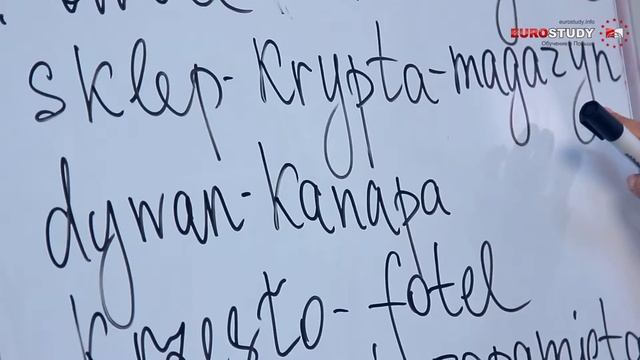 eurostudy.info
EUROSTUDY
Обучение в Польше
sklep - krypta - magazyn
dywan - kanapa
krzesło - fotel